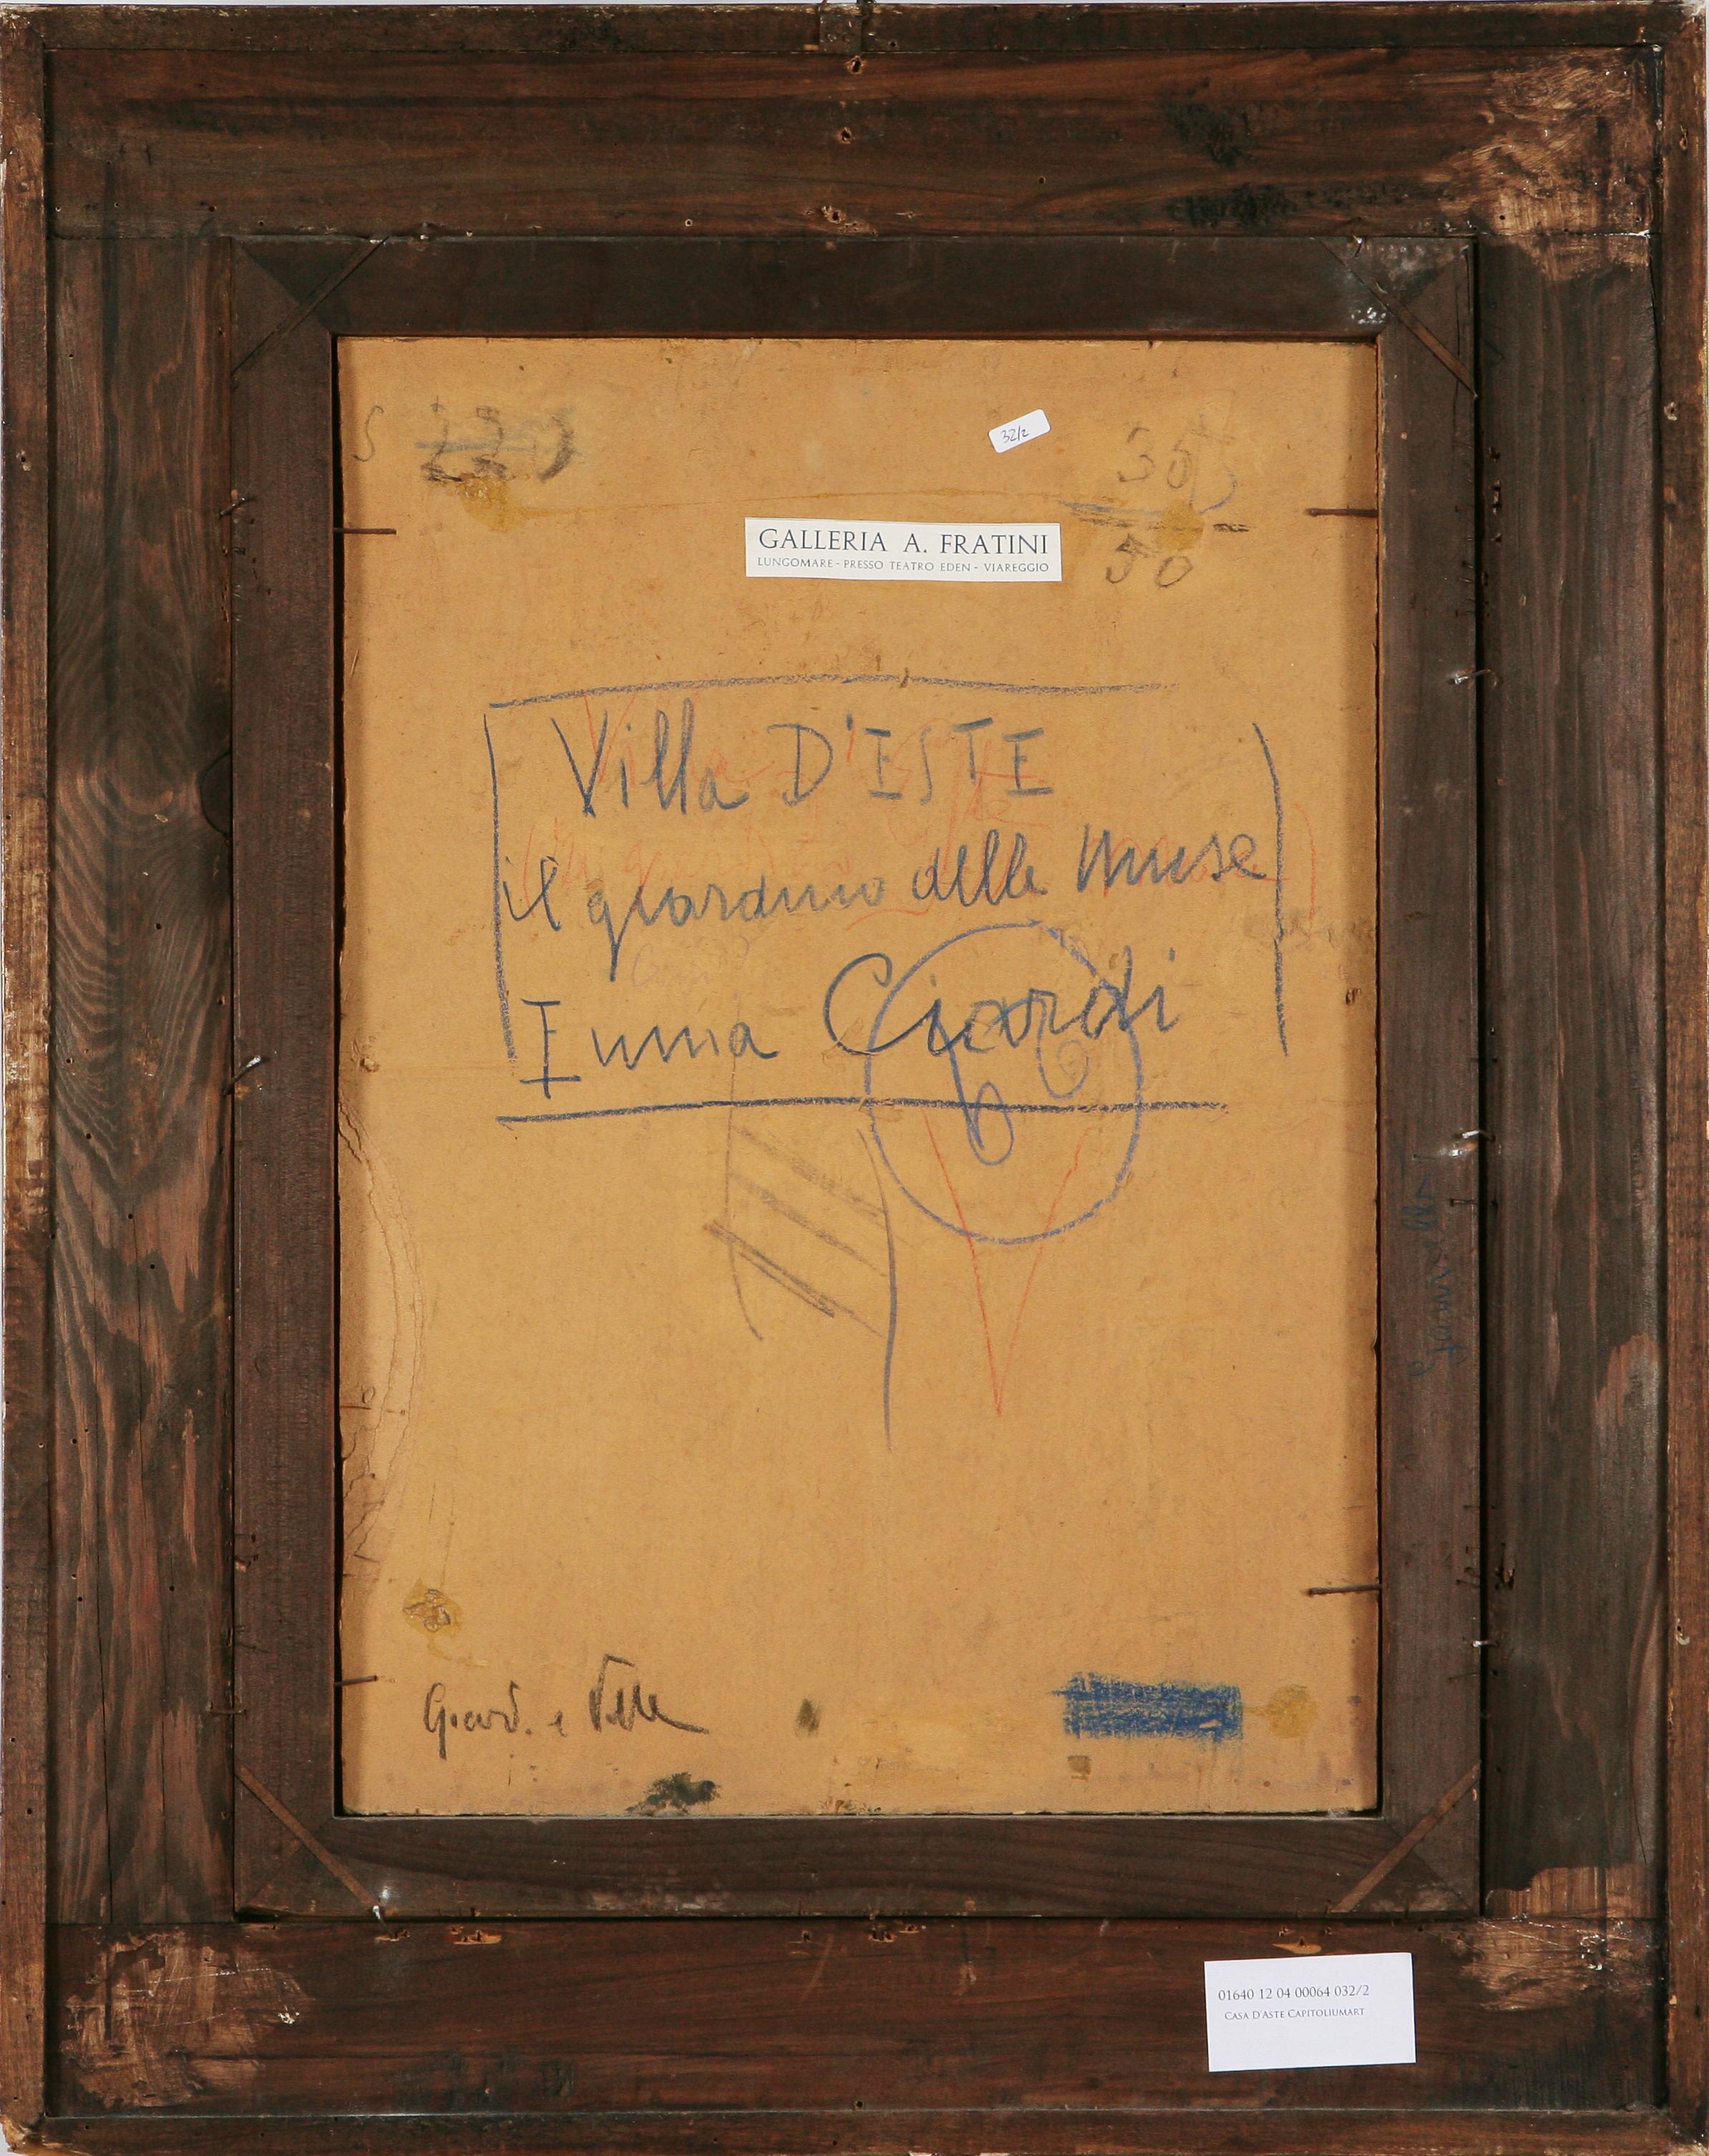 32/2
50
GALLERIA A. FRATINI
LUNGOMARE - PRESSO TEATRO EDEN - VIAREGGIO
Villa D'ESTE
il giardino delle Muse
Emma Ciardi
Giard. e
01640 12 04 00064 032/2
CASA D'ASTE CAPITOLIUMART